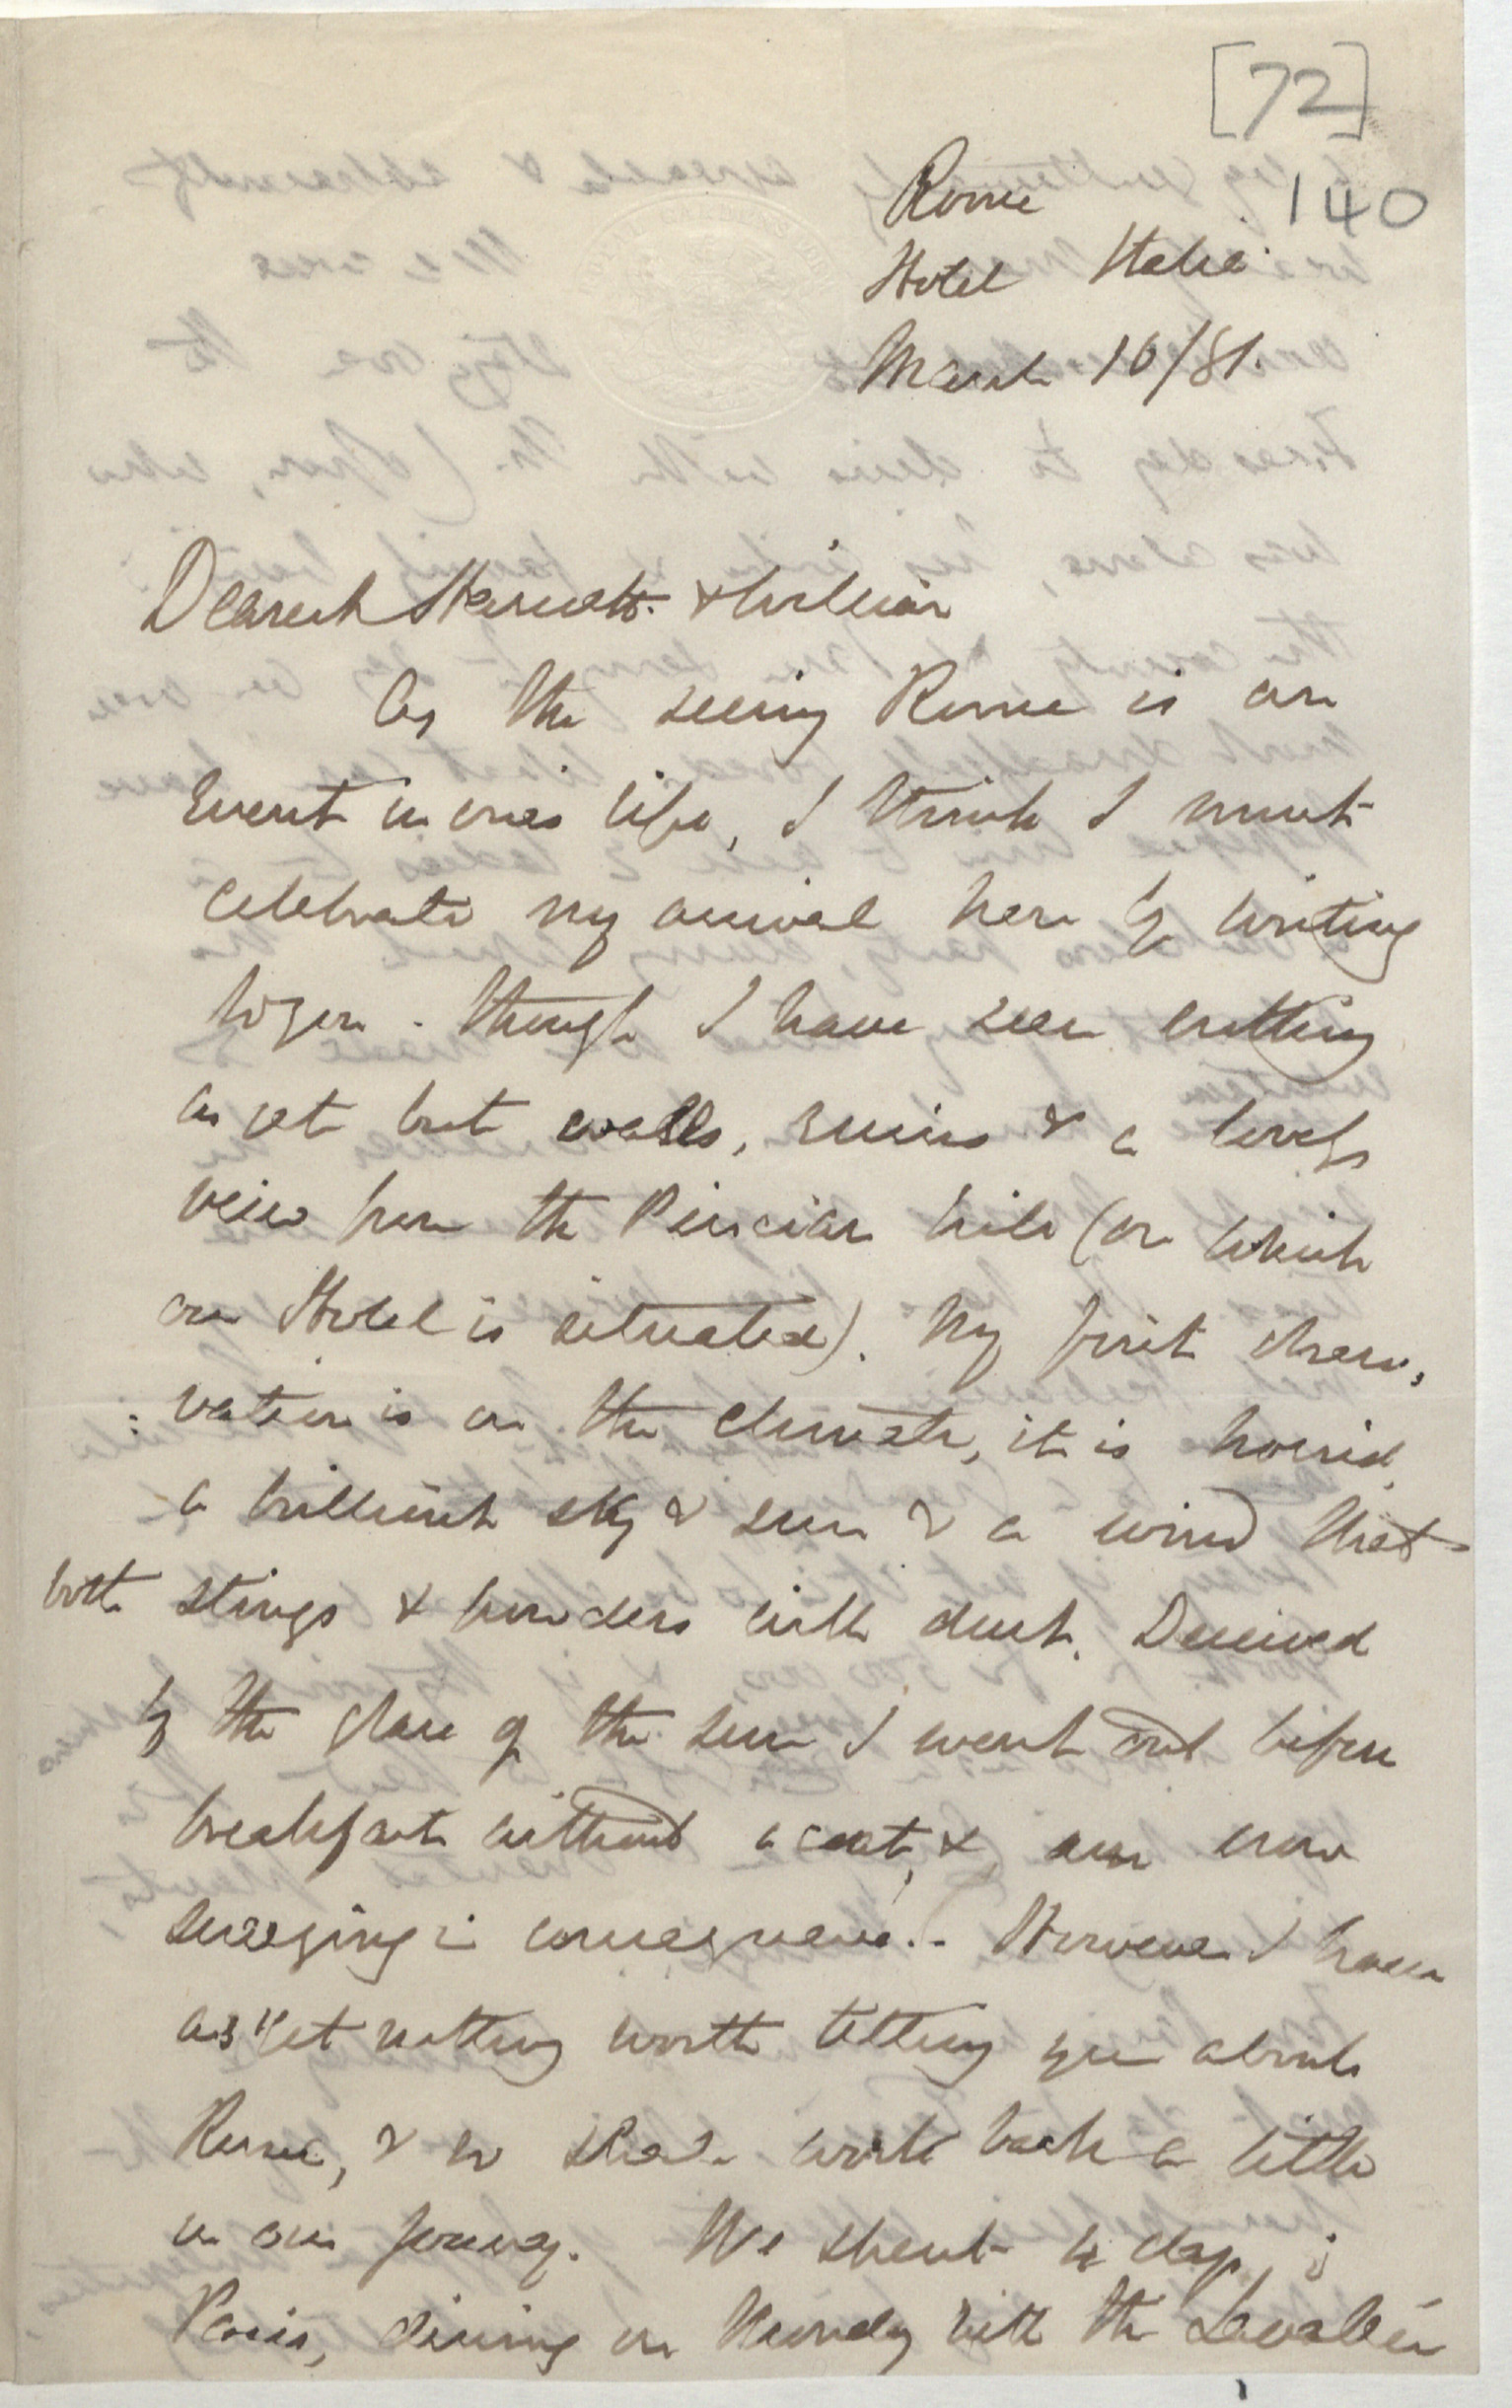 [72]
140
Rome
Hotel Italie
March 16/81.
Dearest Harriett & William
As the seeing Rome is an
event in ones life, I think I must
celebrate my arrival here by writing
to you. though I have seen nothing
as yet but walls, ruins & a lovely
veiw from the Pincian hill (on which
our Hotel is situated). My first obser-
:vation is on the climate, it is horrid,
a brilliant sky & sun & a wind that
both stings & powders with dust. Deceived
by the glare of the sun I went out before
breakfast without a coat, & am now
sneezing in consequence. - However I have
as yet nothing worth telling you about
Rome, & so shall work back a little
on our journey. We spent 4 days in
Paris, dining on Thursday with the